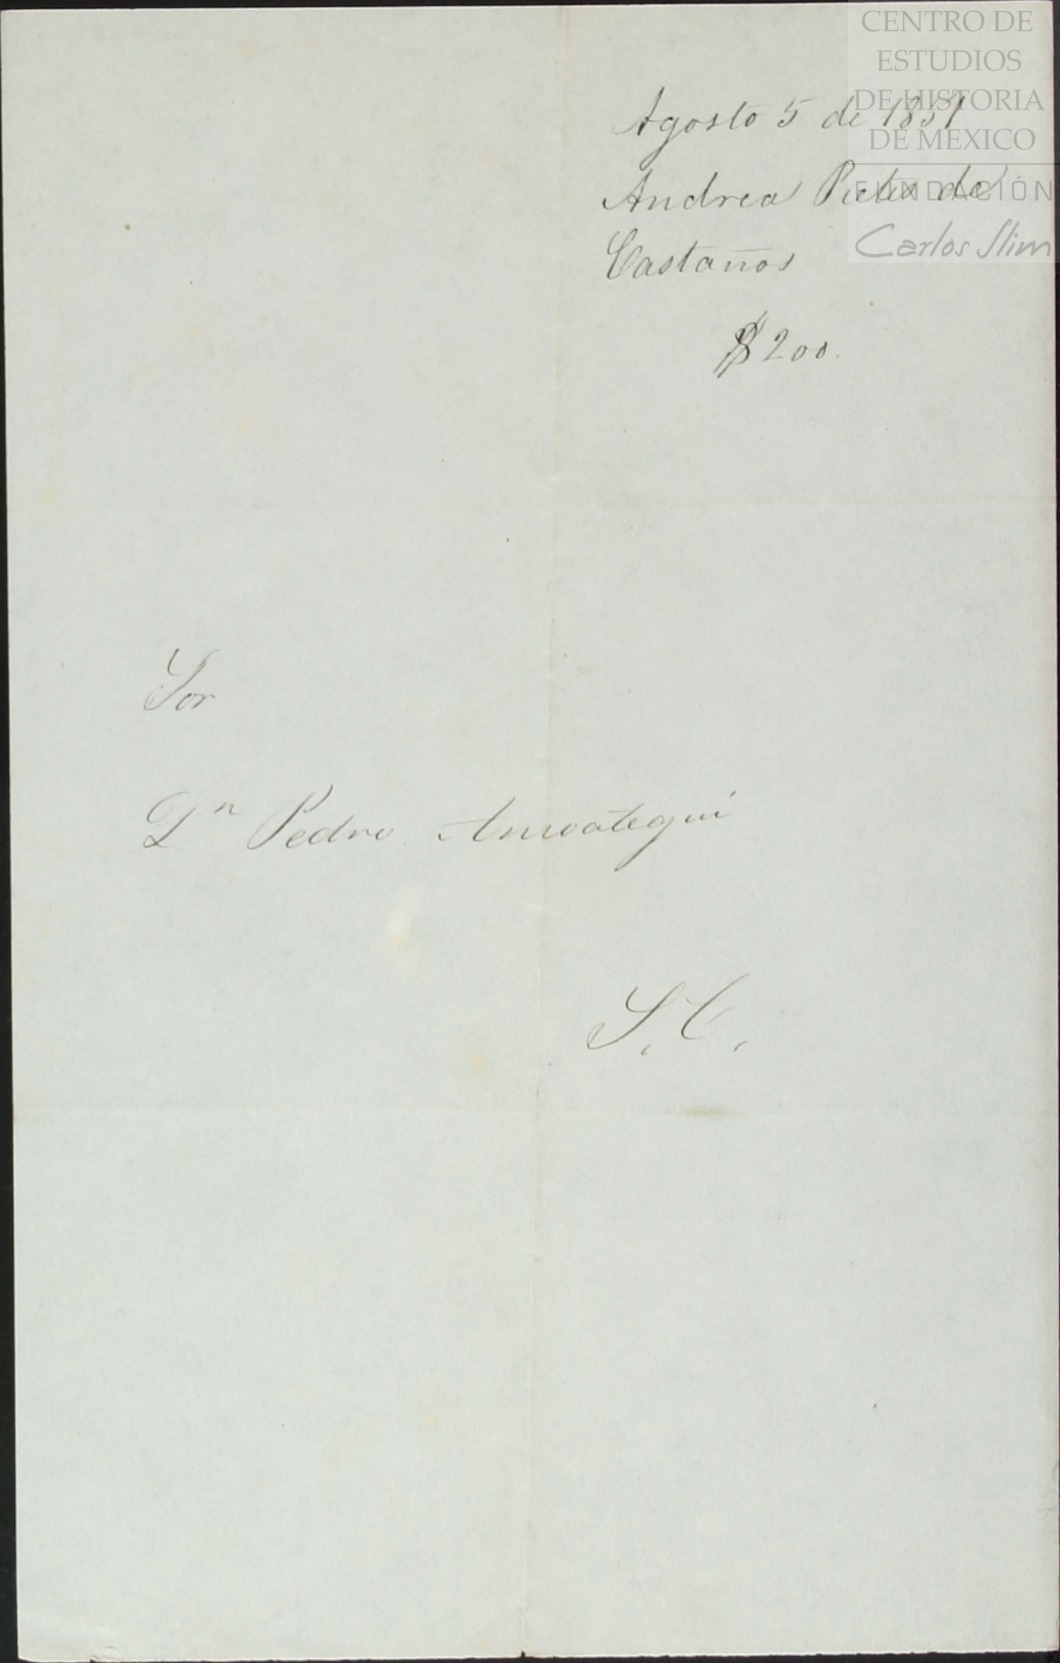 CENTRO DE
ESTUDIOS
DE HISTORIA
DE MEXICO
FUNDACIÓN
Carlos Slim
Agosto 5 de 1857
Andrea de
Castaños
$200.
Sor
Dn Pedro Ansoategui
S. C.